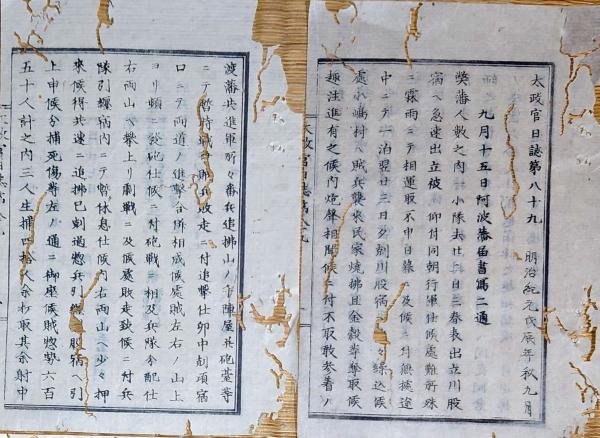 太政官日誌第八十九 明治紀元戊辰年秋九月
九月十五日阿波藩届書寫二通
弊藩人數之内一小隊去廿二日三春表出立川股
宿ヘ急速出立被 仰付同朝行軍仕候處難所殊
ニ霖雨ニテ相運取不申日暮ニ及候ニ付無據途
中ニテ一泊翌廿三日夕刻川股宿
處小嶋村ヘ賊兵襲来民家焼拂且金穀等奪取候
趣注進有之候内炮聲相聞候ニ付不取敢参着ノ
渡藩共進軍所々番兵追拂山ノ下陣屋其砲臺等
ニテ暫時戰 賊兵敗走ニ付追撃仕卯中刻項宿
口ニテ兩道ノ進撃合併相成候處賊左右ノ山上
ヨリ頻ニ發砲仕候ニ付砲戰ニ相及兵隊分配仕
右兩山ヘ攀上リ劇戰ニ及候處敗走致候ニ付兵
隊引揚宿内ニテ暫休息仕候内右兩山ヘ少々押
来候得共速ニ追拂 刻過惣兵引 股宿ヘ引
上申候分捕死傷等左ノ通ニ御座候賊惣勢六百
五十人計之内三人生捕四拾人余打取其余射中